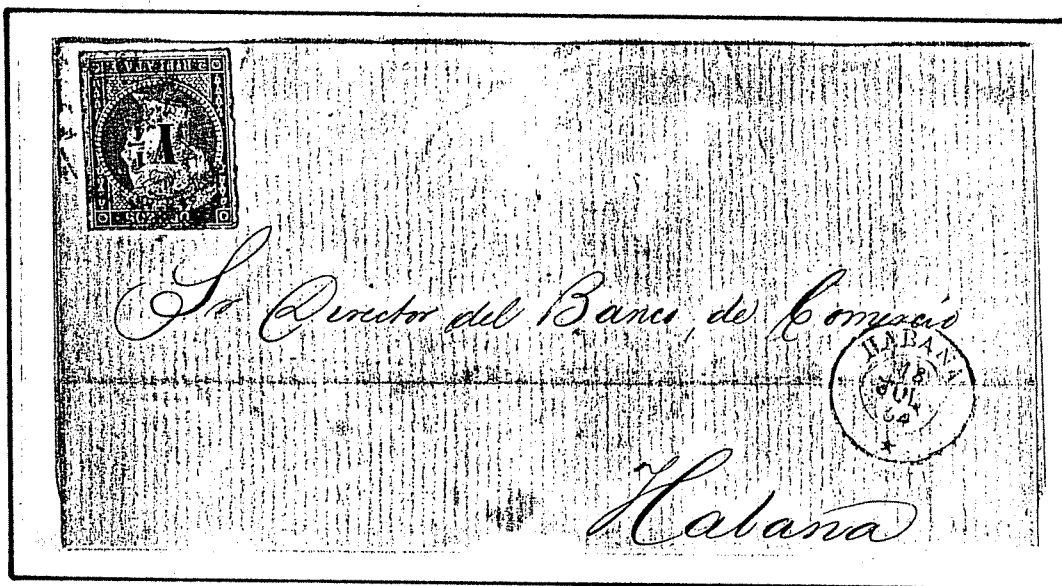 Y¼
Sr Director del Banco de Comercio
HABANA
18
JUL
64
Habana